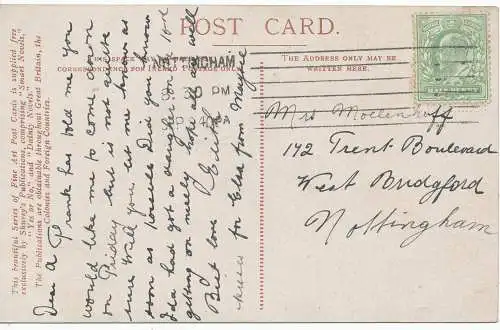 POST CARD.
NOTTINGHAM
PM
THE ADDRESS ONLY MAY BE
WRITTEN HERE.
This beautiful Series of Fine Art Post Cards is supplied free
exclusively by Shurey's Publications, comprising "Smart Novels,"
"Yes or No," and "Dainty Novels."
The Publications are obtainable throughout Great Britain, the
Colonies and Foreign Countries.
Dear A Frank has told me you
would like me to come down
on Friday but is not quite
sure Will you let me know as
soon as possible Did you know
Ida had got a daughter on
getting on nicely hope all are well
Best love Edith
for Elsa from Maysie
Mrs Moellenhoff
172 Trent Boulevard
West Bridgford
Nottingham